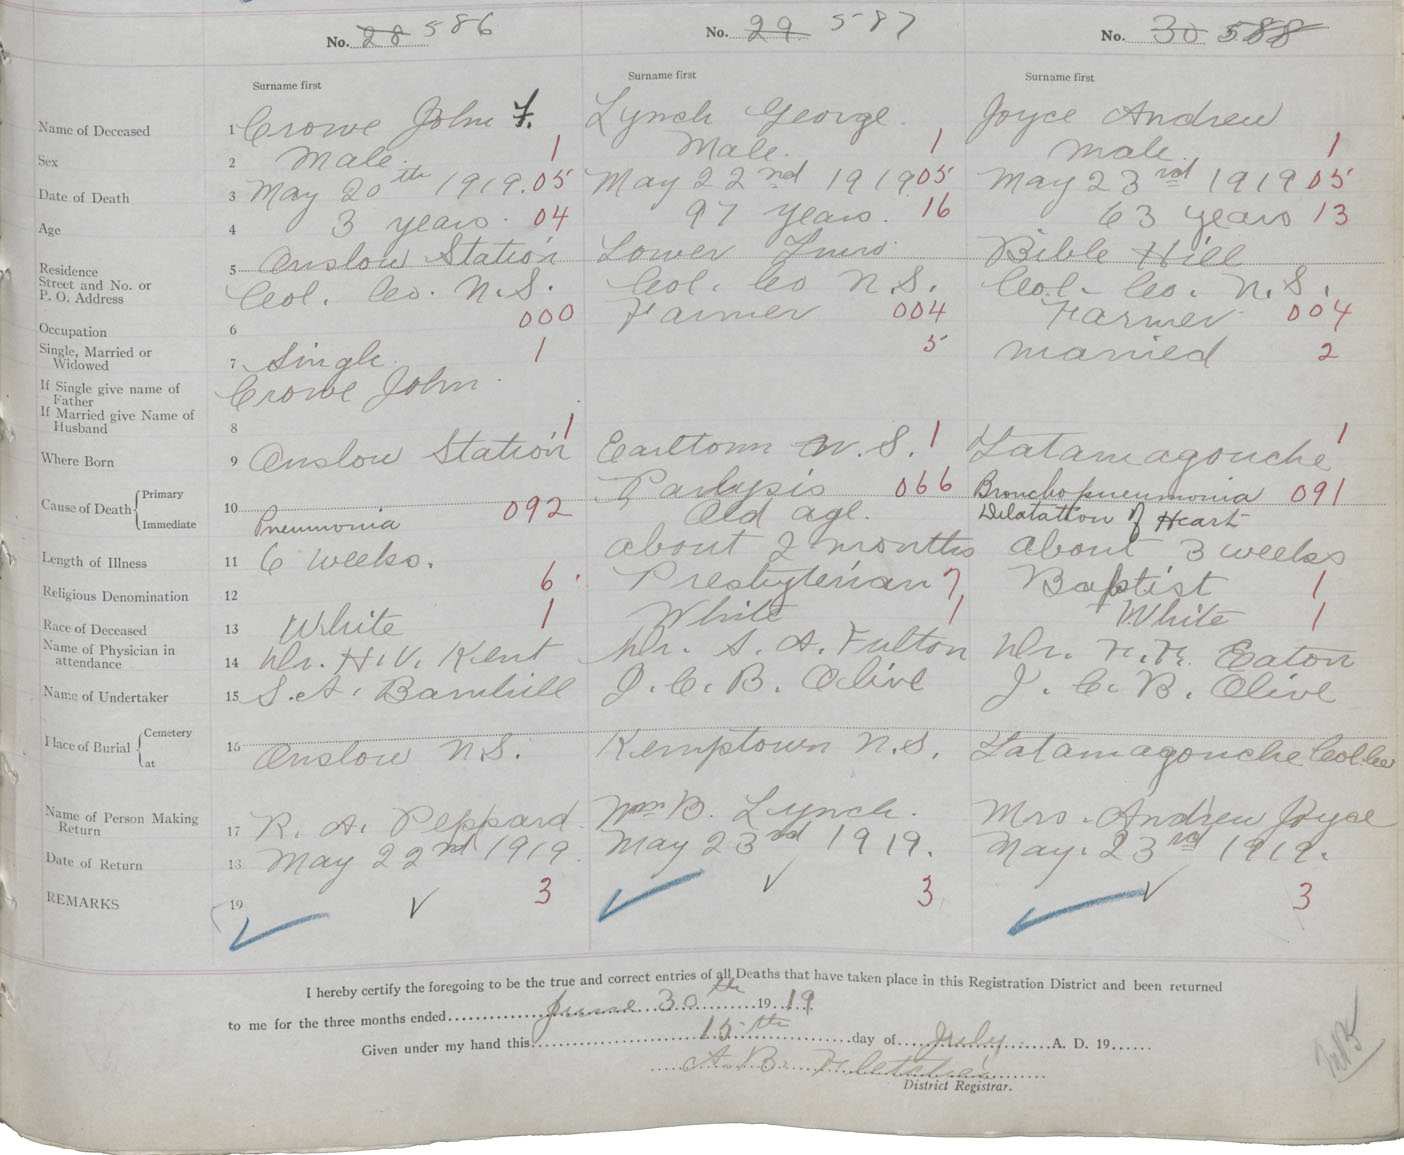 No. 28 586
No. 29 587
No. 30 588
Surname first
Surname first
Surname first
Name of Deceased 1 Crowe John F. Lynch George. Joyce Andrew
Sex 2 Male. 1 Male. 1 Male. 1
Date of Death 3 May 20th 1919. 05 May 22nd 1919 05 May 23rd 1919 05
Age 4 3 years. 04 97 years. 16 63 years 13
Residence 5 Onslow Station Lower Truro Bible Hill
Street and No. or
P. O. Address Col. Co. N.S. Col. Co N.S. Col. Co. N.S.
Occupation 6 000 Farmer 004 Farmer 004
Single, Married or
Widowed 7 Single 1 5 Married 2
If Single give name of
Father Crowe John
If Married give Name of
Husband 8
Where Born 9 Onslow Station 1 Earltown N.S. 1 Tatamagouche 1
Cause of Death Primary 10 Paralysis 066 Bronchopneumonia 091
Immediate Pneumonia 092 Old age. Dilatation of Heart
Length of Illness 11 6 weeks. about 2 months about 3 weeks
Religious Denomination 12 6 Presbyterian 7 Baptist 1
Race of Deceased 13 White 1 White 1 White 1
Name of Physician in
attendance 14 Dr. H.V. Kent Dr. S. A. Fulton Dr. F. F. Eaton
Name of Undertaker 15 S. A. Barnhill J. C. B. Olive J. C. B. Olive
Place of Burial Cemetery 16
at Onslow N.S. Kemptown N.S. Tatamagouche Col. Co
Name of Person Making
Return 17 R. A. Peppard Wm B. Lynch. Mrs. Andrew Joyce
Date of Return 18 May 22nd 1919. May 23rd 1919. May. 23rd 1919.
REMARKS 19 3 3 3
I hereby certify the foregoing to be the true and correct entries of all Deaths that have taken place in this Registration District and been returned
to me for the three months ended June 30th 1919.
Given under my hand this 15th day of July A. D. 19
A. B.
District Registrar.